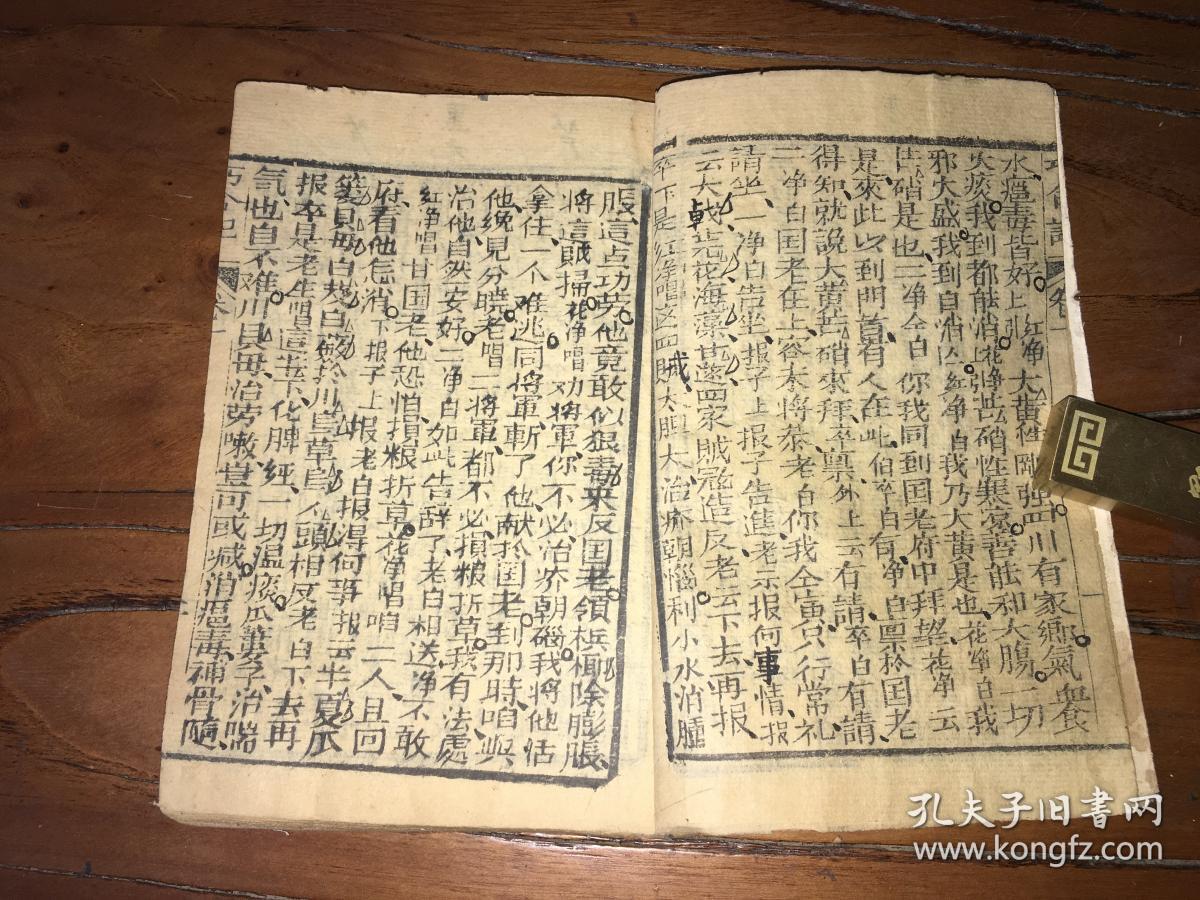 水瘟毒皆好上張红净大黄性剛強四川有家鄉氣養
痰我到都能消上張芒硝性寒凉善能和大腸一切
邪大盛我到自消红净白我乃大黄是也花净白我
芒硝是也二净仝白你我同到国老府中拜望花净云
是來此以到門首有人在此伯卒白有净白禀於国老
得知就說大黄芒硝來拜卒禀外上云有請卒白有請
二净白国老在上谷本將恭老白你我仝寅只行常礼
請坐二净白告坐报子上报子告進老示报何事情报
云大戟芫花海藻甘遂四家賊冦造反老云下去再报
卒下是红净唱這四賊戎大胆大治病朝惱利小水消腫
脹這点功劳他竟敢似狠毒來反国老領兵權除膨脹
將這賊掃花净唱劝將軍你不必治病朝碯我將他活
拿住一个难逃同將軍斬了他献於国老到那時咱與
他緃見分曉老唱二將軍都不必損粮折草我有法處
治他自然安好二净白如此告辞了老白相送净不敢
红净唱甘国老他恐怕損粮折草花净唱咱二人且回
府看他怎消下报子上报老白报得何事报云半夏瓜
蔞貝毋白芨白蘞於川烏草烏人頭相反老白下去再
报卒是老生唱這半下化脾經一切温痰瓜蔞子治喘
氣也自不难川貝毋治劳嗽豈可或减消瘟毒補骨隨
巧合記 卷一